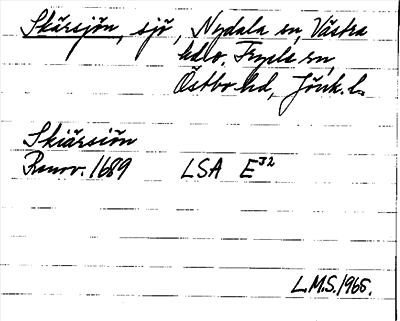 Skärsjön, sjö, Nydala sn, Västra
hd o. Fryele sn,
Östbo hd, Jönk. l.
Skiärsiön
Renov. 1689 LSA E32
L.M.S. 1965.